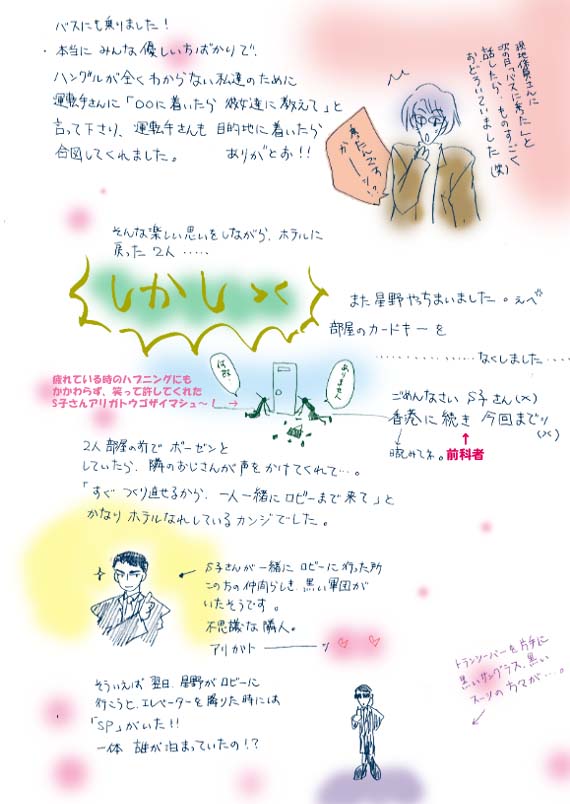 バスにも乗りました!
・本当に みんな優しい方ばかりで、
ハングルが全くわからない私達のために
運転手さんに「〇〇に着いたら 彼女達に教えて」と
言って下さり、運転手さんも 目的地に着いたら
合図してくれました。 ありがとお!!
現地係員さんに
次の日「バスに乗った」と
話したら、ものすごく
おどろいていました
(笑)
乗たんですかーッ!?
そんな楽しい思いをしながら、ホテルに
戻った 2人 ・・・・・
しかしっく
また 星野 やっちまいました。えへ
部屋のカードキーを
・・・・・・・・・・なくしました・・・・
疲れている時のハプニングにも
かかわらず、笑って許してくれた
S子さんアリガトウゴザイマシュ〜! →
ありません
ごめんなさい S子さん(×)
香港に続き 今回まで!!
(×)
前科者
2人 部屋の前で ボーゼンと
していたら、隣のおじさんが声をかけてくれて…。
「すぐ つくり直せるから、一人一緒にロビーまで来て」と
かなり ホテルなれしているカンジでした。
← S子さんが 一緒に ロビーに行った所
この方の仲間らしき 黒い軍団が
いたそうです。
不思議な隣人。
アリガトーッ ♡ ♡
トランシーバーを片手に
黒いサングラス、黒い
スーツの方々が…。
そういえば 翌日、星野がロビーに
行こうと、エレベーターを降りた時には
「SP」がいた!!
一体 誰が泊まっていたの!?